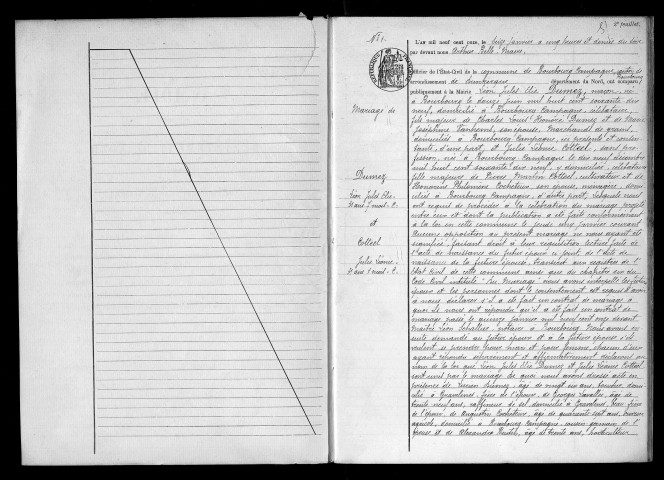 2e feuillet.
N° 1.
L'AN mil neuf cent onze, le seize janvier a cinq heures et demie du soir
par devant nous Maire,
Officier de l'État-Civil de la commune de Bourbourg Campagne, canton de Bourbourg
arrondissement de Dunkerque département du Nord, ont comparu
publiquement à la Mairie Léon Jules Elie Dumez, maçon, né
à Bourbourg le douze juin mil huit cent soixante dix
neuf, domicilié à Bourbourg Campagne, célibataire,
Mariage de
fils majeur de Charles Louis Honoré Dumez et de Marie
Joséphine son épouse, Marchands de grains,
domiciliés à Bourbourg Campagne, ici présents et consen-
tants, d'une part, et Julie Léonie Cotteel, sans pro-
fession, née à Bourbourg Campagne le dix neuf décembre
mil huit cent soixante dix neuf, y domiciliée, célibataire
Dumez
fille majeure de Pierre Martin Cotteel, cultivateur et de
Léon Jules Elie
Philomène Cocheteux son épouse, ménagère, domi-
31 ans 7 mois
ciliés à Bourbourg Campagne, d'autre part, lesquels nous
ont requis de procéder à la célébration du mariage projeté
et
entre eux et dont la publication a été faite conformément
à la loi en cette commune le jeudi cinq janvier courant
Cotteel
Aucune opposition au présent mariage ne nous ayant été
signifiée, faisant droit à leur réquisition lecture faite de
Julie Léonie
l'acte de naissance du futur époux ci joint, de l'acte de
naissance de la future épouse, transcrit aux registres de l'
État Civil de cette commune ainsi que du chapitre six du
Code Civil intitulé "Du Mariage" nous avons interpellé les futurs
époux et les personnes dont le consentement est requis d'avoir
à nous déclarer s'il a été fait un contrat de mariage à
quoi ils nous ont répondu qu'il a été fait un contrat de
mariage passé le quinze janvier mil neuf cent onze devant
Maître Léon notaire à Bourbourg. Nous avons en-
suite demandé au futur époux et à la future épouse s'ils
veulent se prendre pour mari et pour femme, chacun d'eux
ayant répondu séparément et affirmativement déclarons au
nom de la loi que Léon Jules Elie Dumez et Julie Léonie Cotteel
sont unis par le mariage de quoi nous avons dressé acte en
présence de Lucien Dumez, âgé de vingt six ans, domi-
cilié à Gravelines, frère de l'époux, de Georges âgé de
trente neuf ans, raffineur de sel domicilié à Gravelines, beau frère
de l'époux, de Augustin Cocheteux, âgé de quarante sept ans, ouvrier
agricole, domicilié à Bourbourg Campagne, cousin germain de l'
épouse et de Alexandre âgé de trente ans, horticulteur